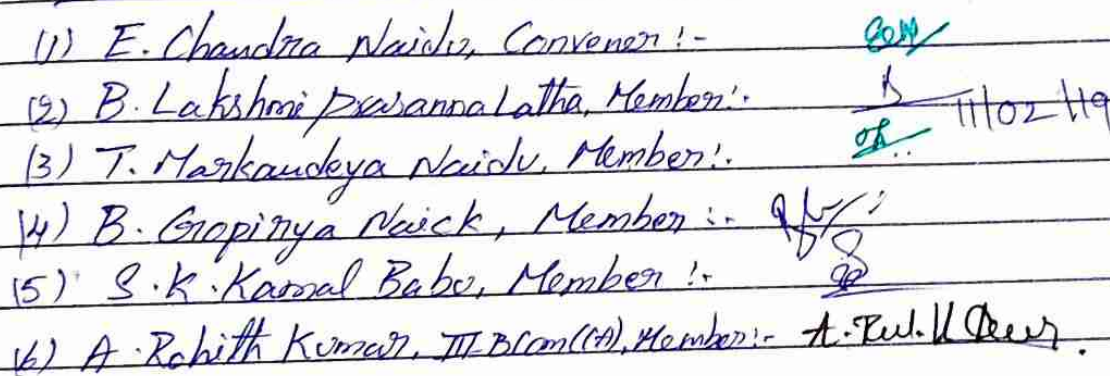 (1) E. Chandra Naidu, Convener :-
(2) B. Lakshmi Prasanna Latha, Member :- 11/02/19
(3) T. Markandeya Naidu, Member :-
(4) B. Gopinya Naick, Member :-
(5) S.K. Kamal Babu, Member :-
(6) A. Rohith Kumar, III B.Com(CA), Member :-